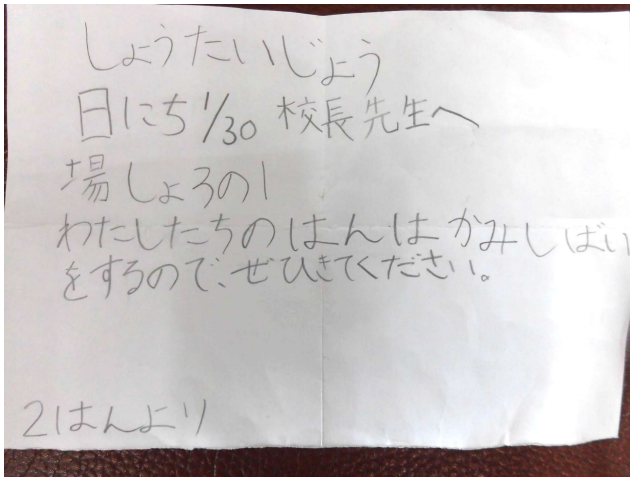 しょうたいじょう
日にち1/30 校長先生へ
場しょろの1
わたしたちのはんはかみしばい
をするので、ぜひきてください。
2はんより